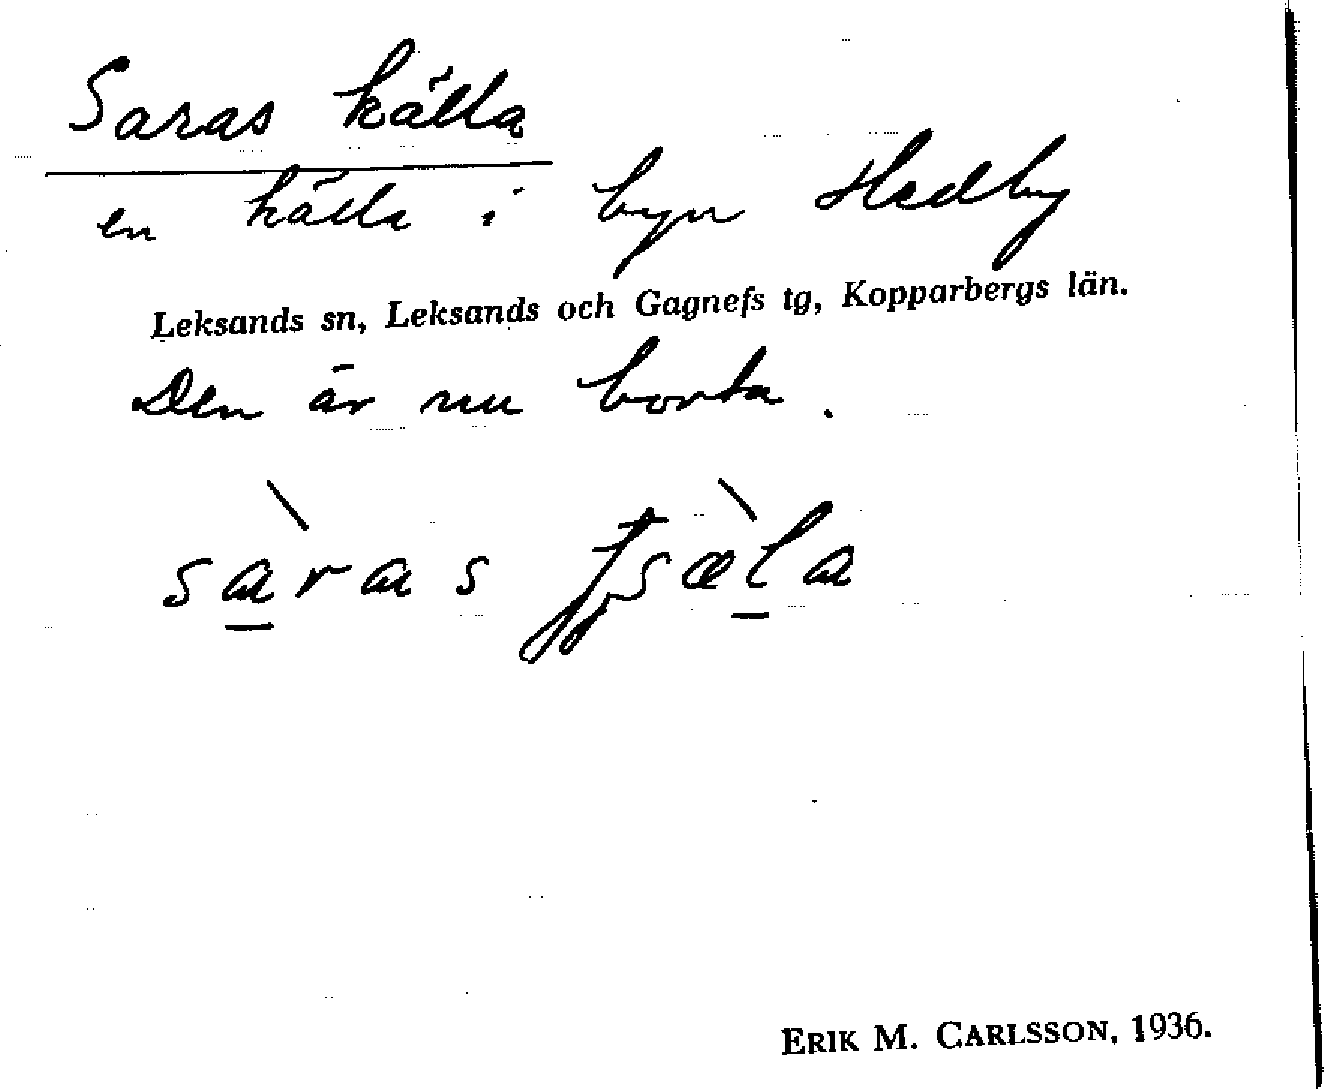 Saras källa
en källa i byn Hedby
Leksands sn, Leksands och Gagnefs tg, Kopparbergs län.
Den är nu borta.
ERIK M. CARLSSON, 1936.